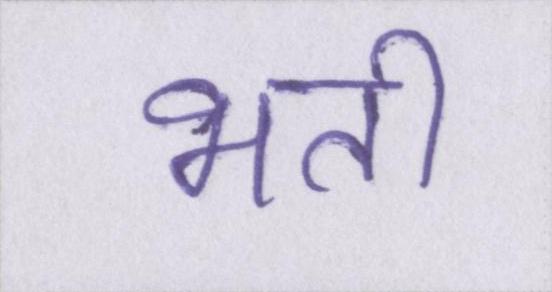 भती